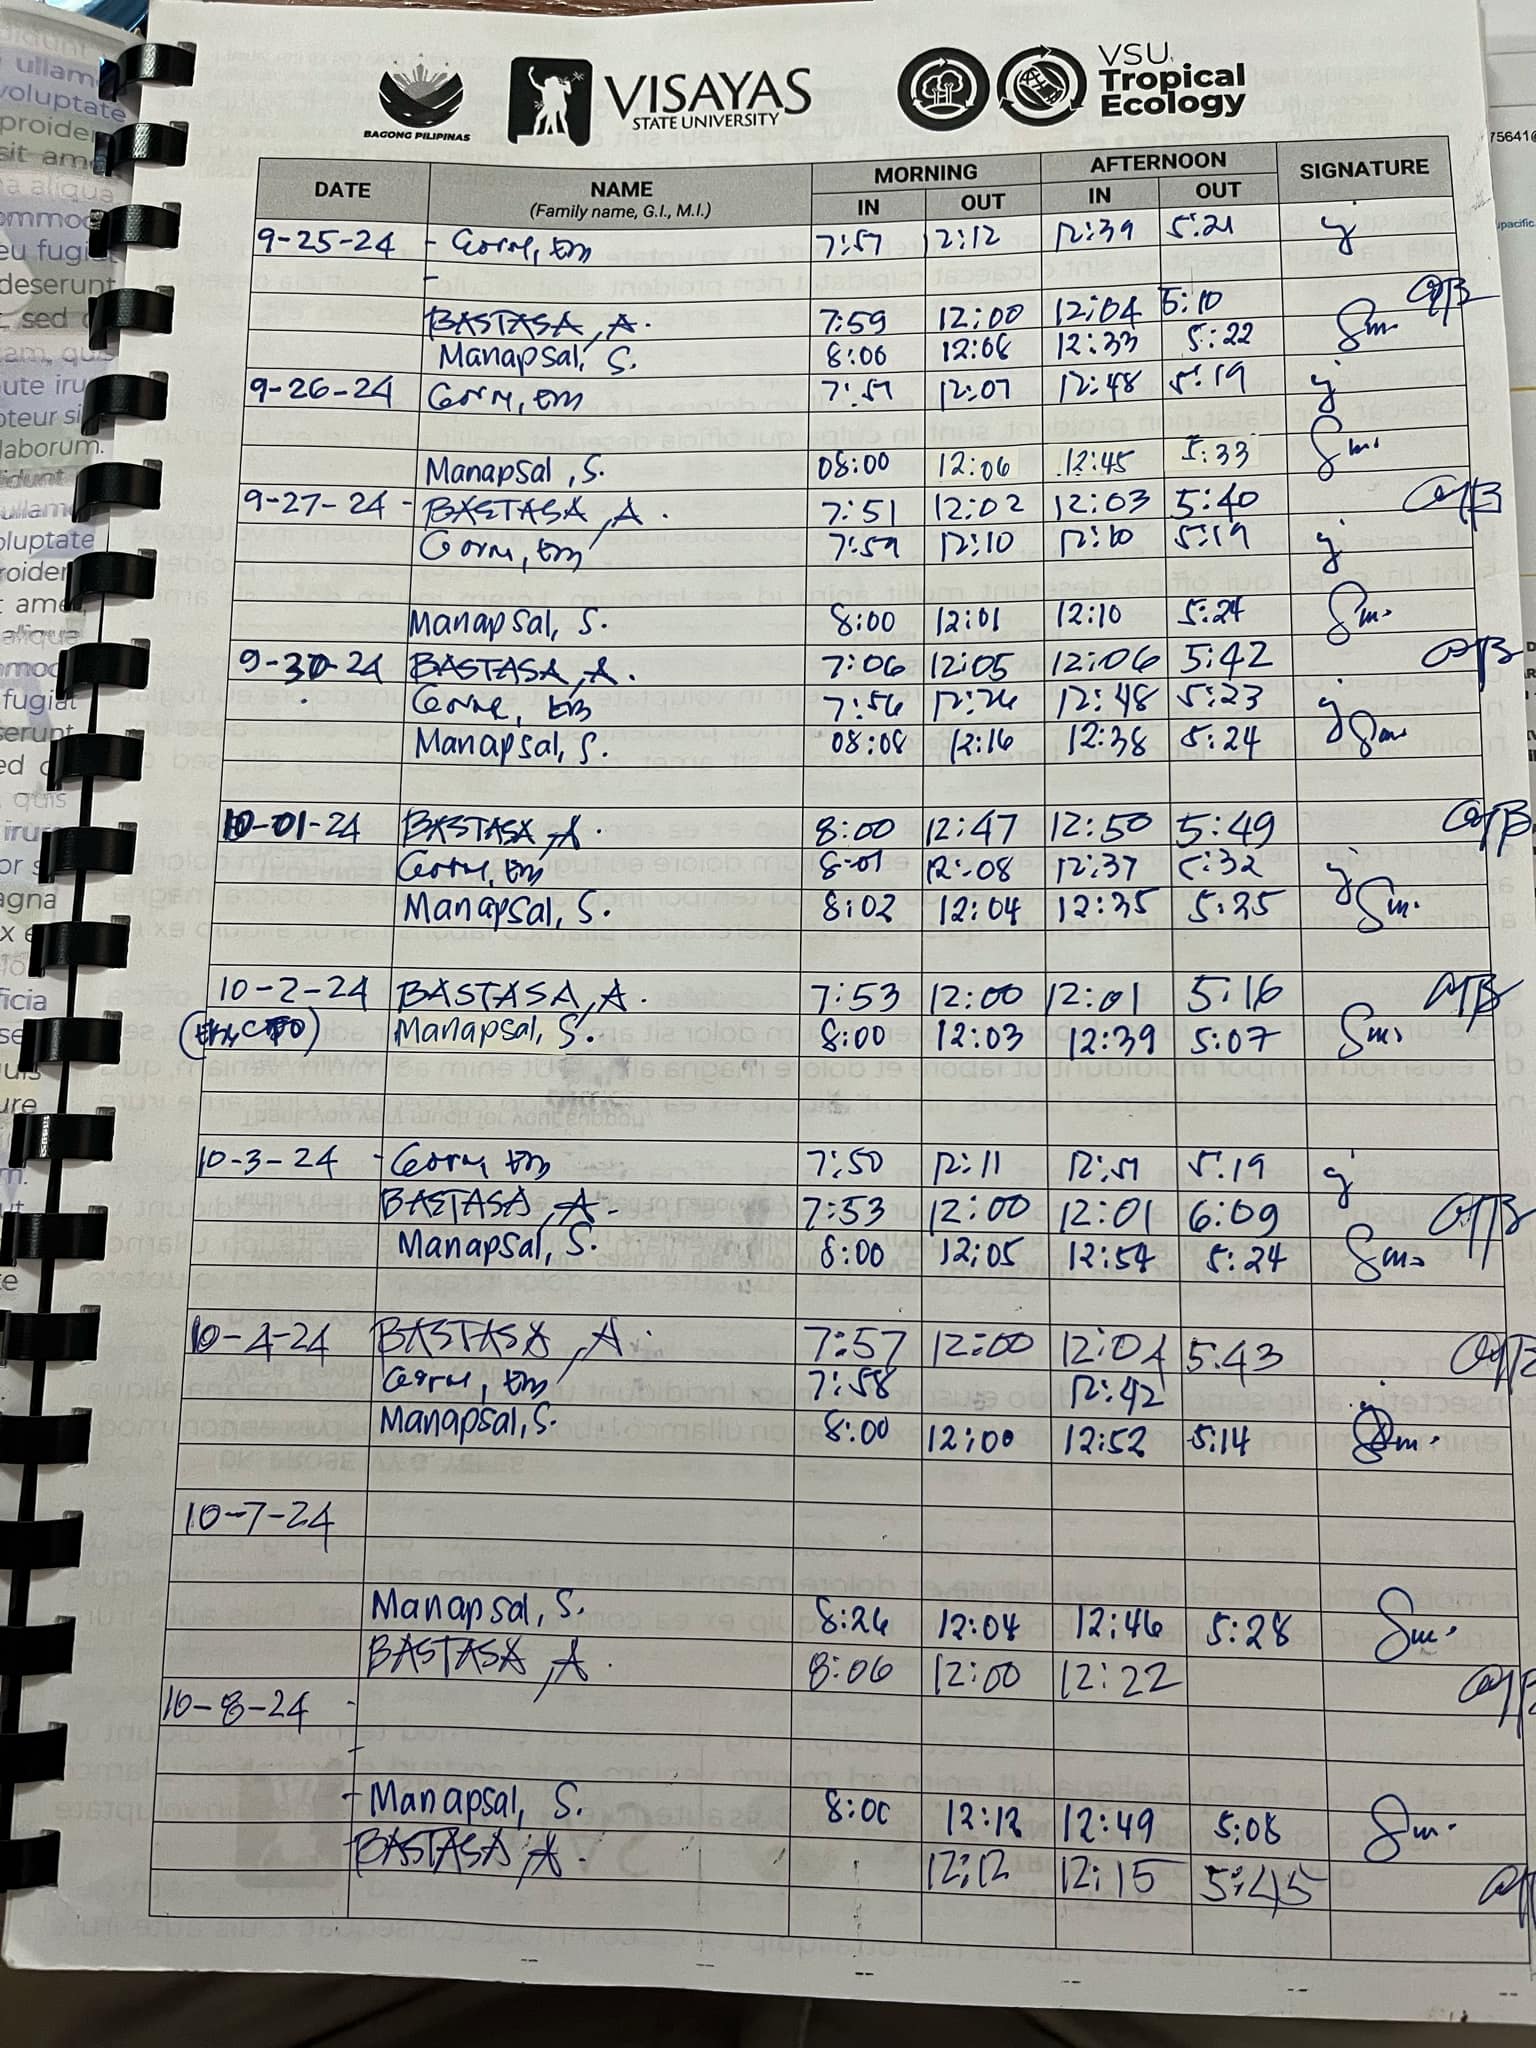 BAGONG PILIPINAS
VISAYAS
STATE UNIVERSITY
VSU
Tropical
Ecology
DATE NAME MORNING AFTERNOON SIGNATURE
(Family name, G.I., M.I.) IN OUT IN OUT
9-25-24 - 7:57 12:12 12:39 5:21
-
BASTASA, A. 7:59 12:00 12:04 5:10
Manapsal, S. 8:00 12:08 12:33 5:22
9-26-24 7:57 12:07 12:48 5:19
Manapsal, S. 08:00 12:06 12:45 5:33
9-27-24 - BASTASA, A. 7:51 12:02 12:03 5:40
7:59 12:10 12:10 5:19
Manapsal, S. 8:00 12:01 12:10 5:24
9-30-24 BASTASA, A. 7:06 12:05 12:06 5:42
7:56 12:26 12:48 5:23
Manapsal, S. 08:08 12:16 12:38 5:24
10-01-24 BASTASA, A. 8:00 12:47 12:50 5:49
8:01 12:08 12:37 5:32
Manapsal, S. 8:02 12:04 12:35 5:25
10-2-24 BASTASA, A. 7:53 12:00 12:01 5:16
Manapsal, S. 8:00 12:03 12:39 5:07
10-3-24 - 7:50 12:11 12:51 5:19
BASTASA, A. 7:53 12:00 12:01 6:09
Manapsal, S. 8:00 12:05 12:54 5:24
10-4-24 BASTASA, A. 7:57 12:00 12:01 5:43
7:58 12:42
Manapsal, S. 8:00 12:00 12:52 5:14
10-7-24
Manapsal, S. 8:26 12:04 12:46 5:28
BASTASA, A. 8:06 12:00 12:22
10-8-24 -
-
- Manapsal, S. 8:00 12:12 12:49 5:08
BASTASA, A. 12:12 12:15 5:45